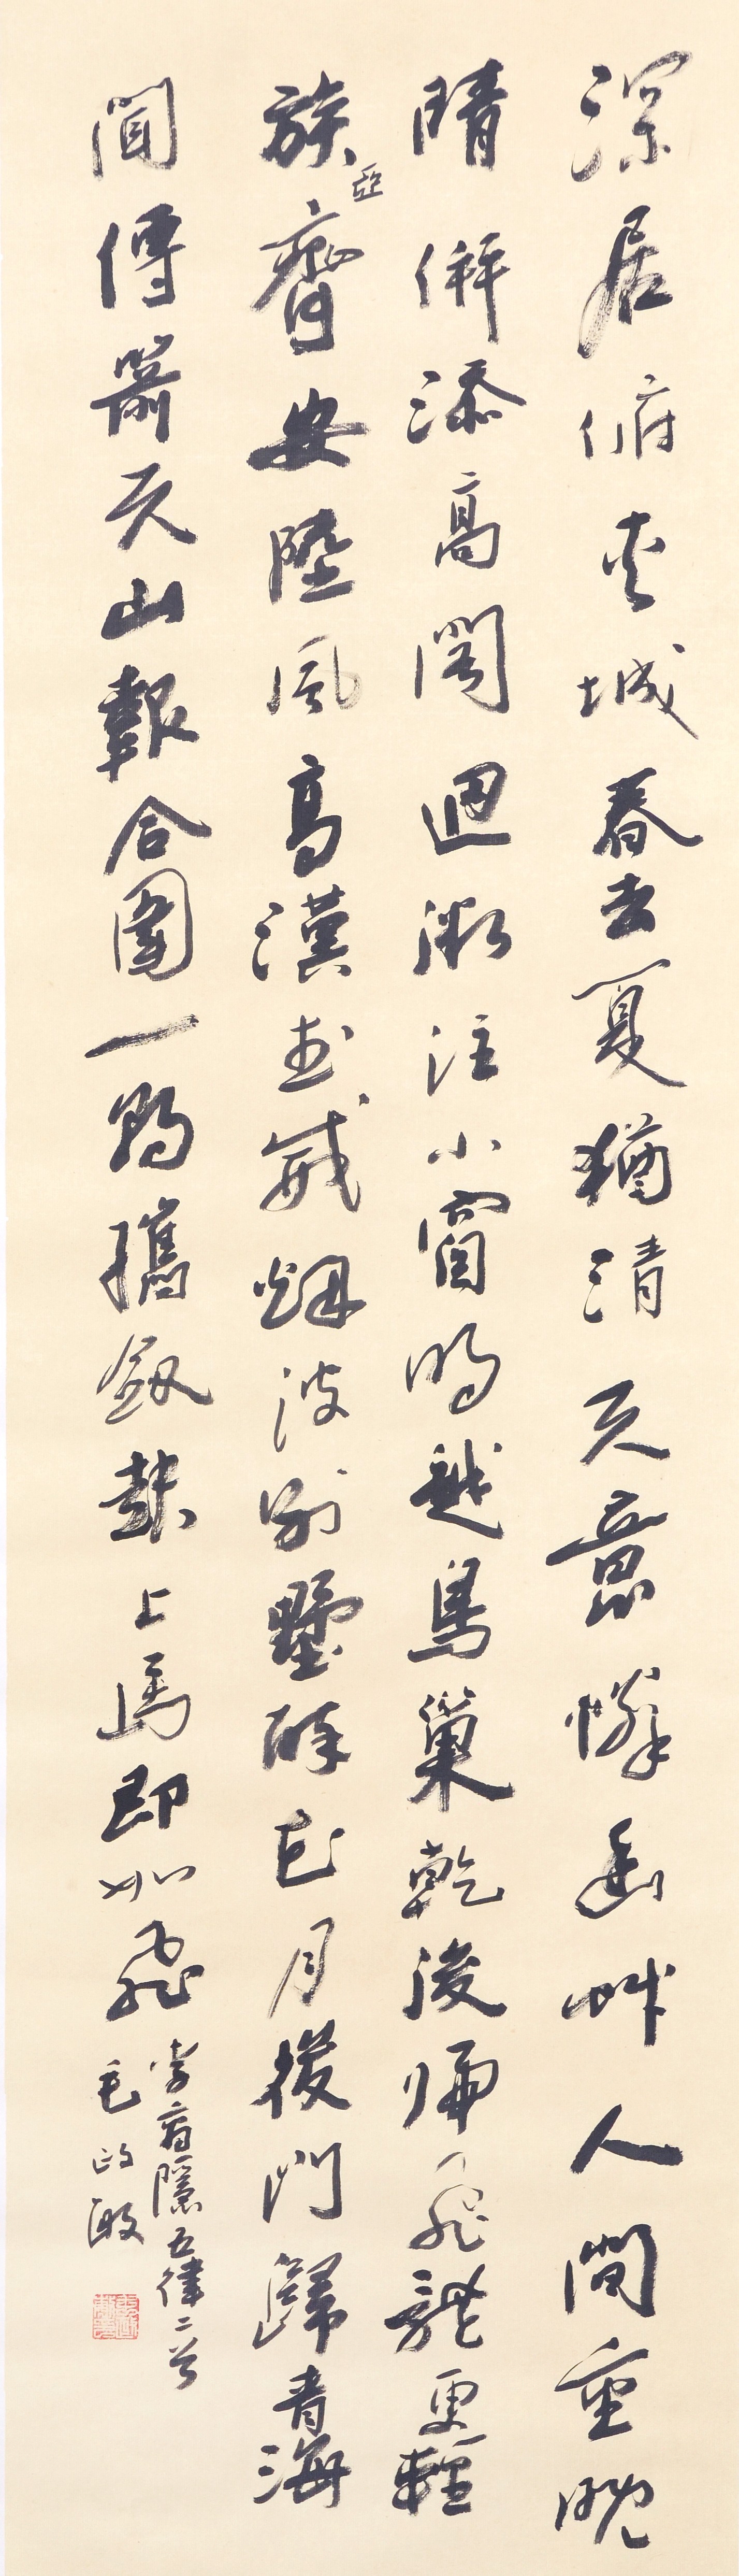 深居俯夾城春去夏猶清天意憐幽艸人間重晚
晴併添高閣迥微注小窗明越鳥巢乾後歸飛體更輕
族亞齊安陸風高漢武威烟波別墅醉花月後門歸青海
聞傳箭天山報合圍一朝攜劔起上馬即如飛
李商隱五律二首
毛